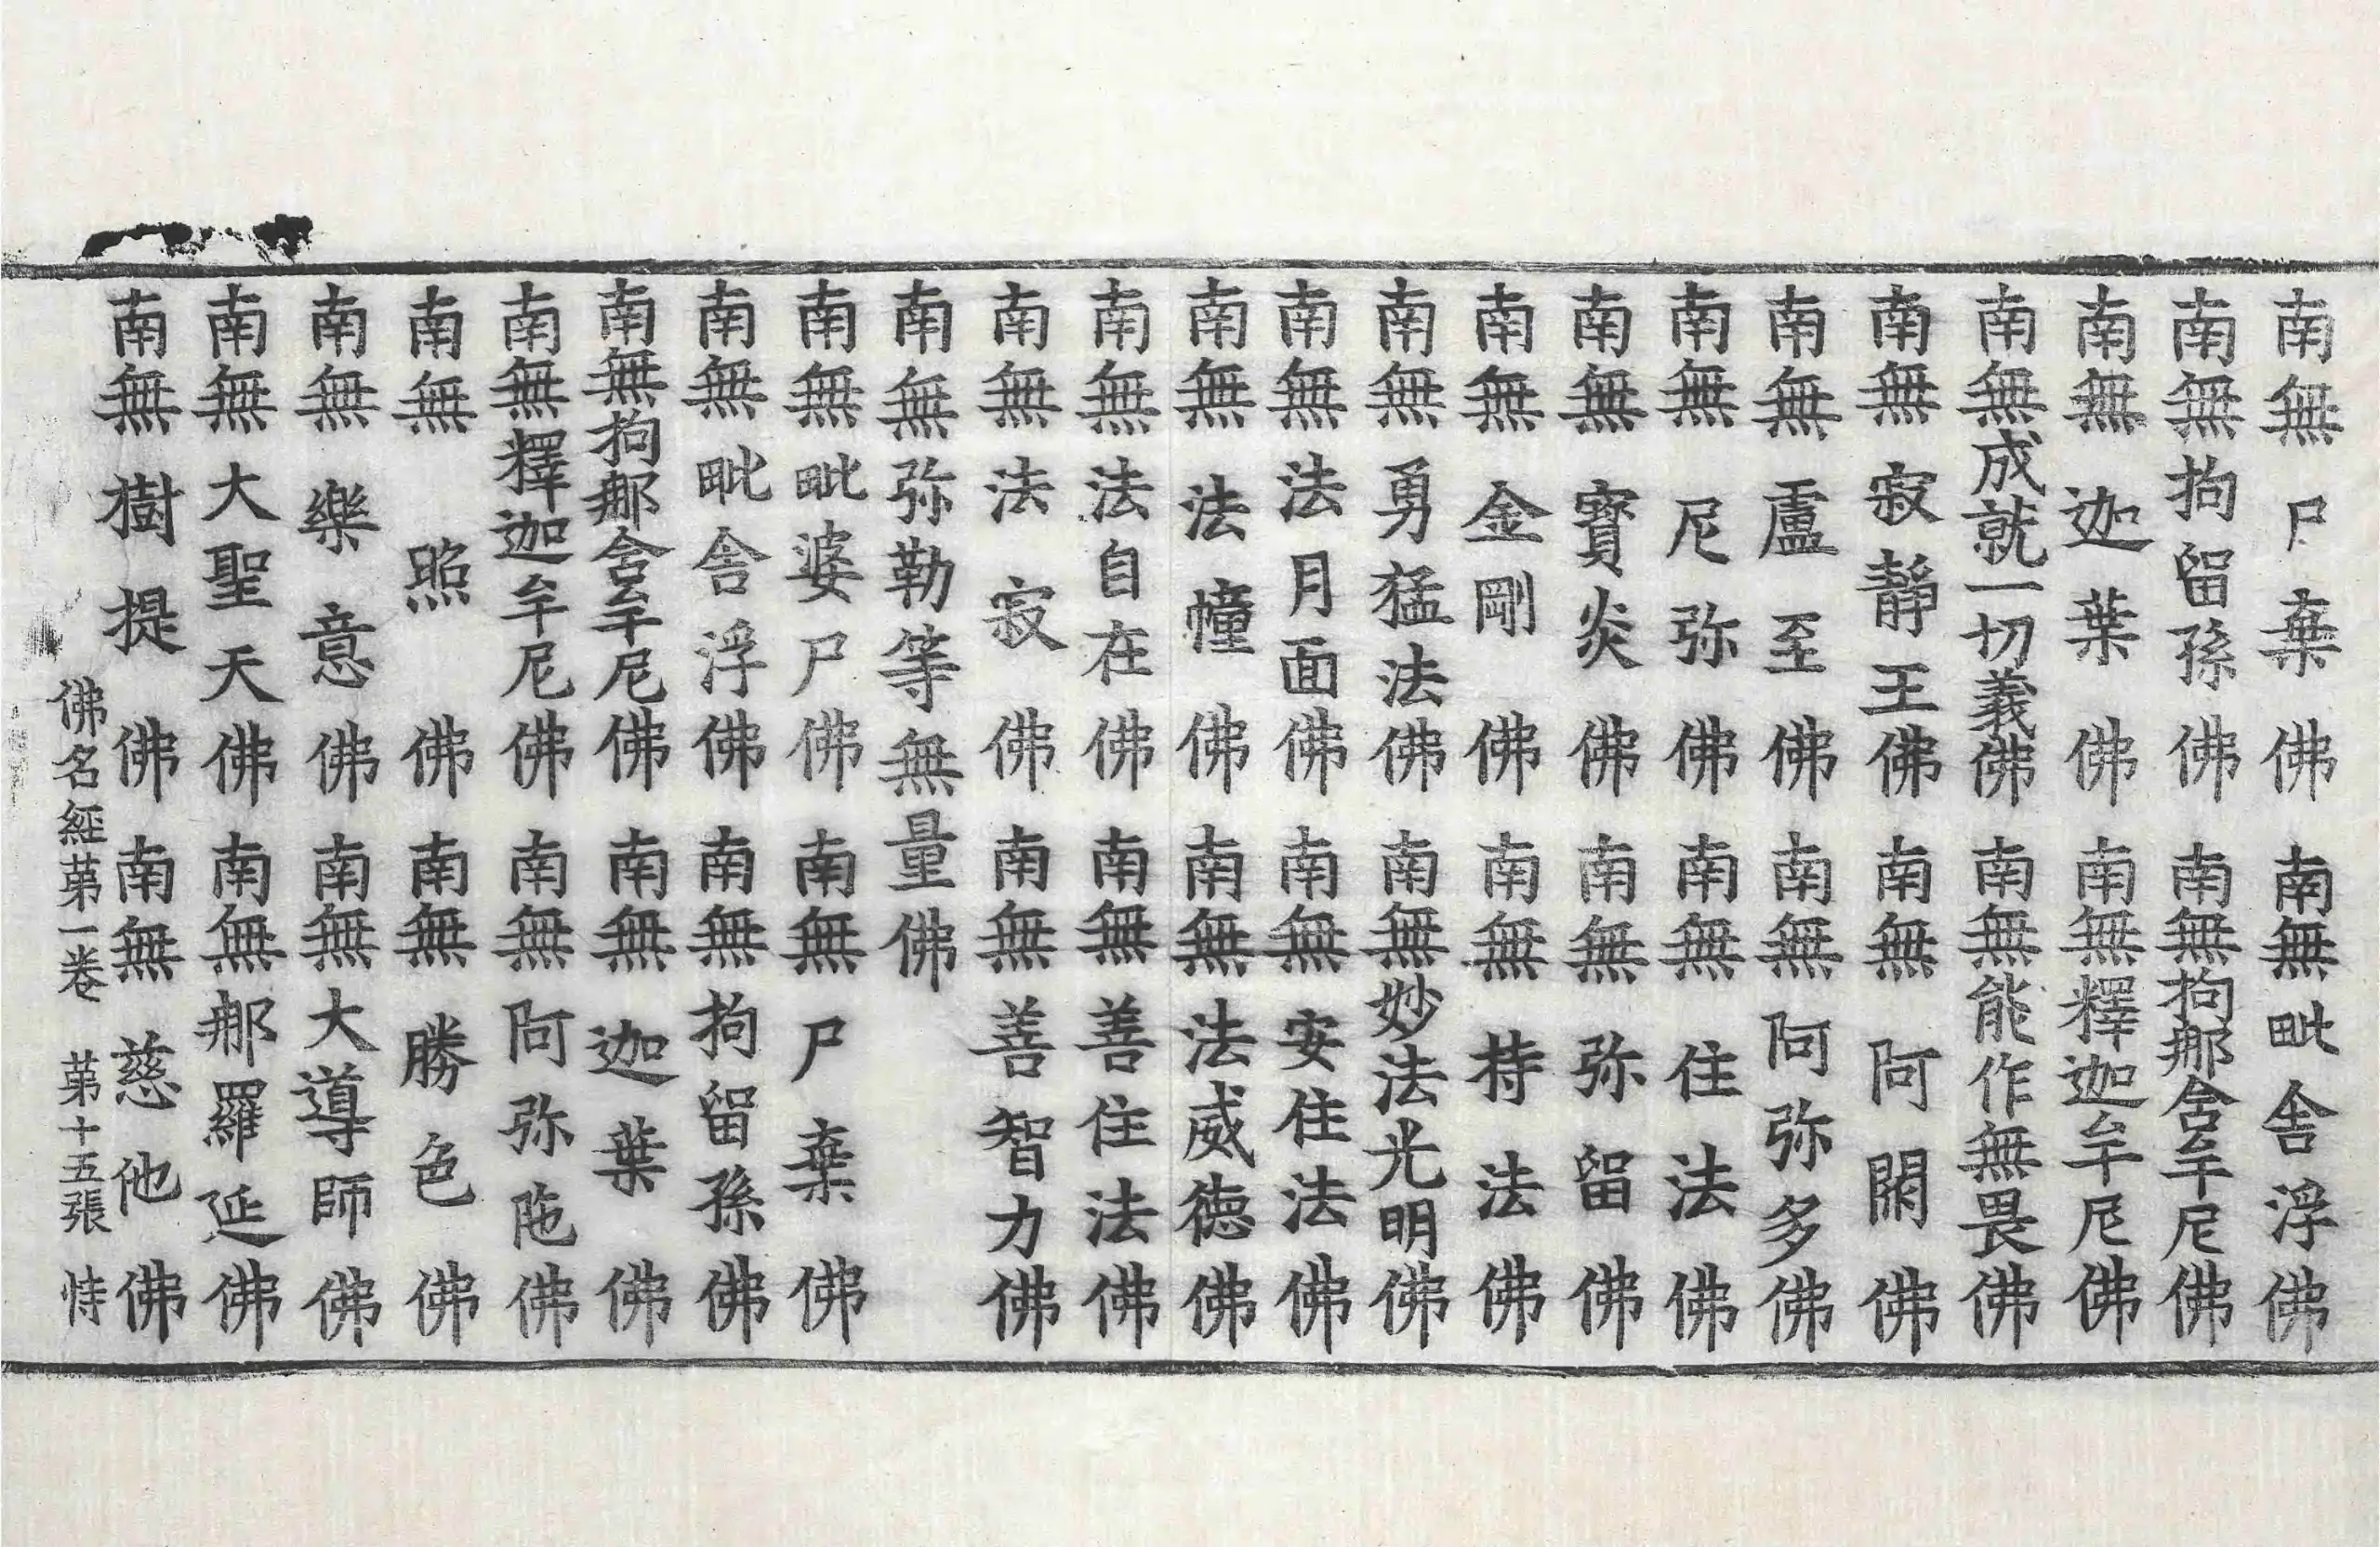 南無尸棄佛南無毗舍浮佛
南無拘留孫佛南無拘那含牟尼佛
南無迦葉佛南無釋迦牟尼佛
南無成就一切義佛南無能作無畏佛
南無寂靜王佛南無阿閦佛
南無盧至佛南無阿弥多佛
南無尼弥佛南無住法佛
南無寶炎佛南無弥留佛
南無金剛佛南無持法佛
南無勇猛法佛南無妙法光明佛
南無法月面佛南無安住法佛
南無法幢佛南無法威德佛
南無法自在佛南無善住法佛
南無法寂佛南無善智力佛
南無弥勒等無量佛
南無毗婆尸佛南無尸棄佛
南無毗舍浮佛南無拘留孫佛
南無拘那含牟尼佛南無迦葉佛
南無釋迦牟尼佛南無阿弥陁佛
南無照佛南無勝色佛
南無樂意佛南無大導師佛
南無大聖天佛南無那羅延佛
南無樹提佛南無慈他佛
佛名經苐一卷 苐十五張 恃